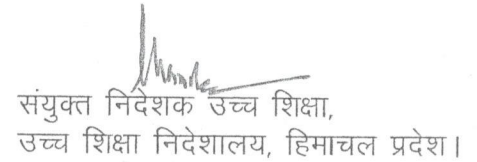 संयुक्त निदेशक उच्च शिक्षा,
उच्च शिक्षा निदेशालय, हिमाचल प्रदेश।